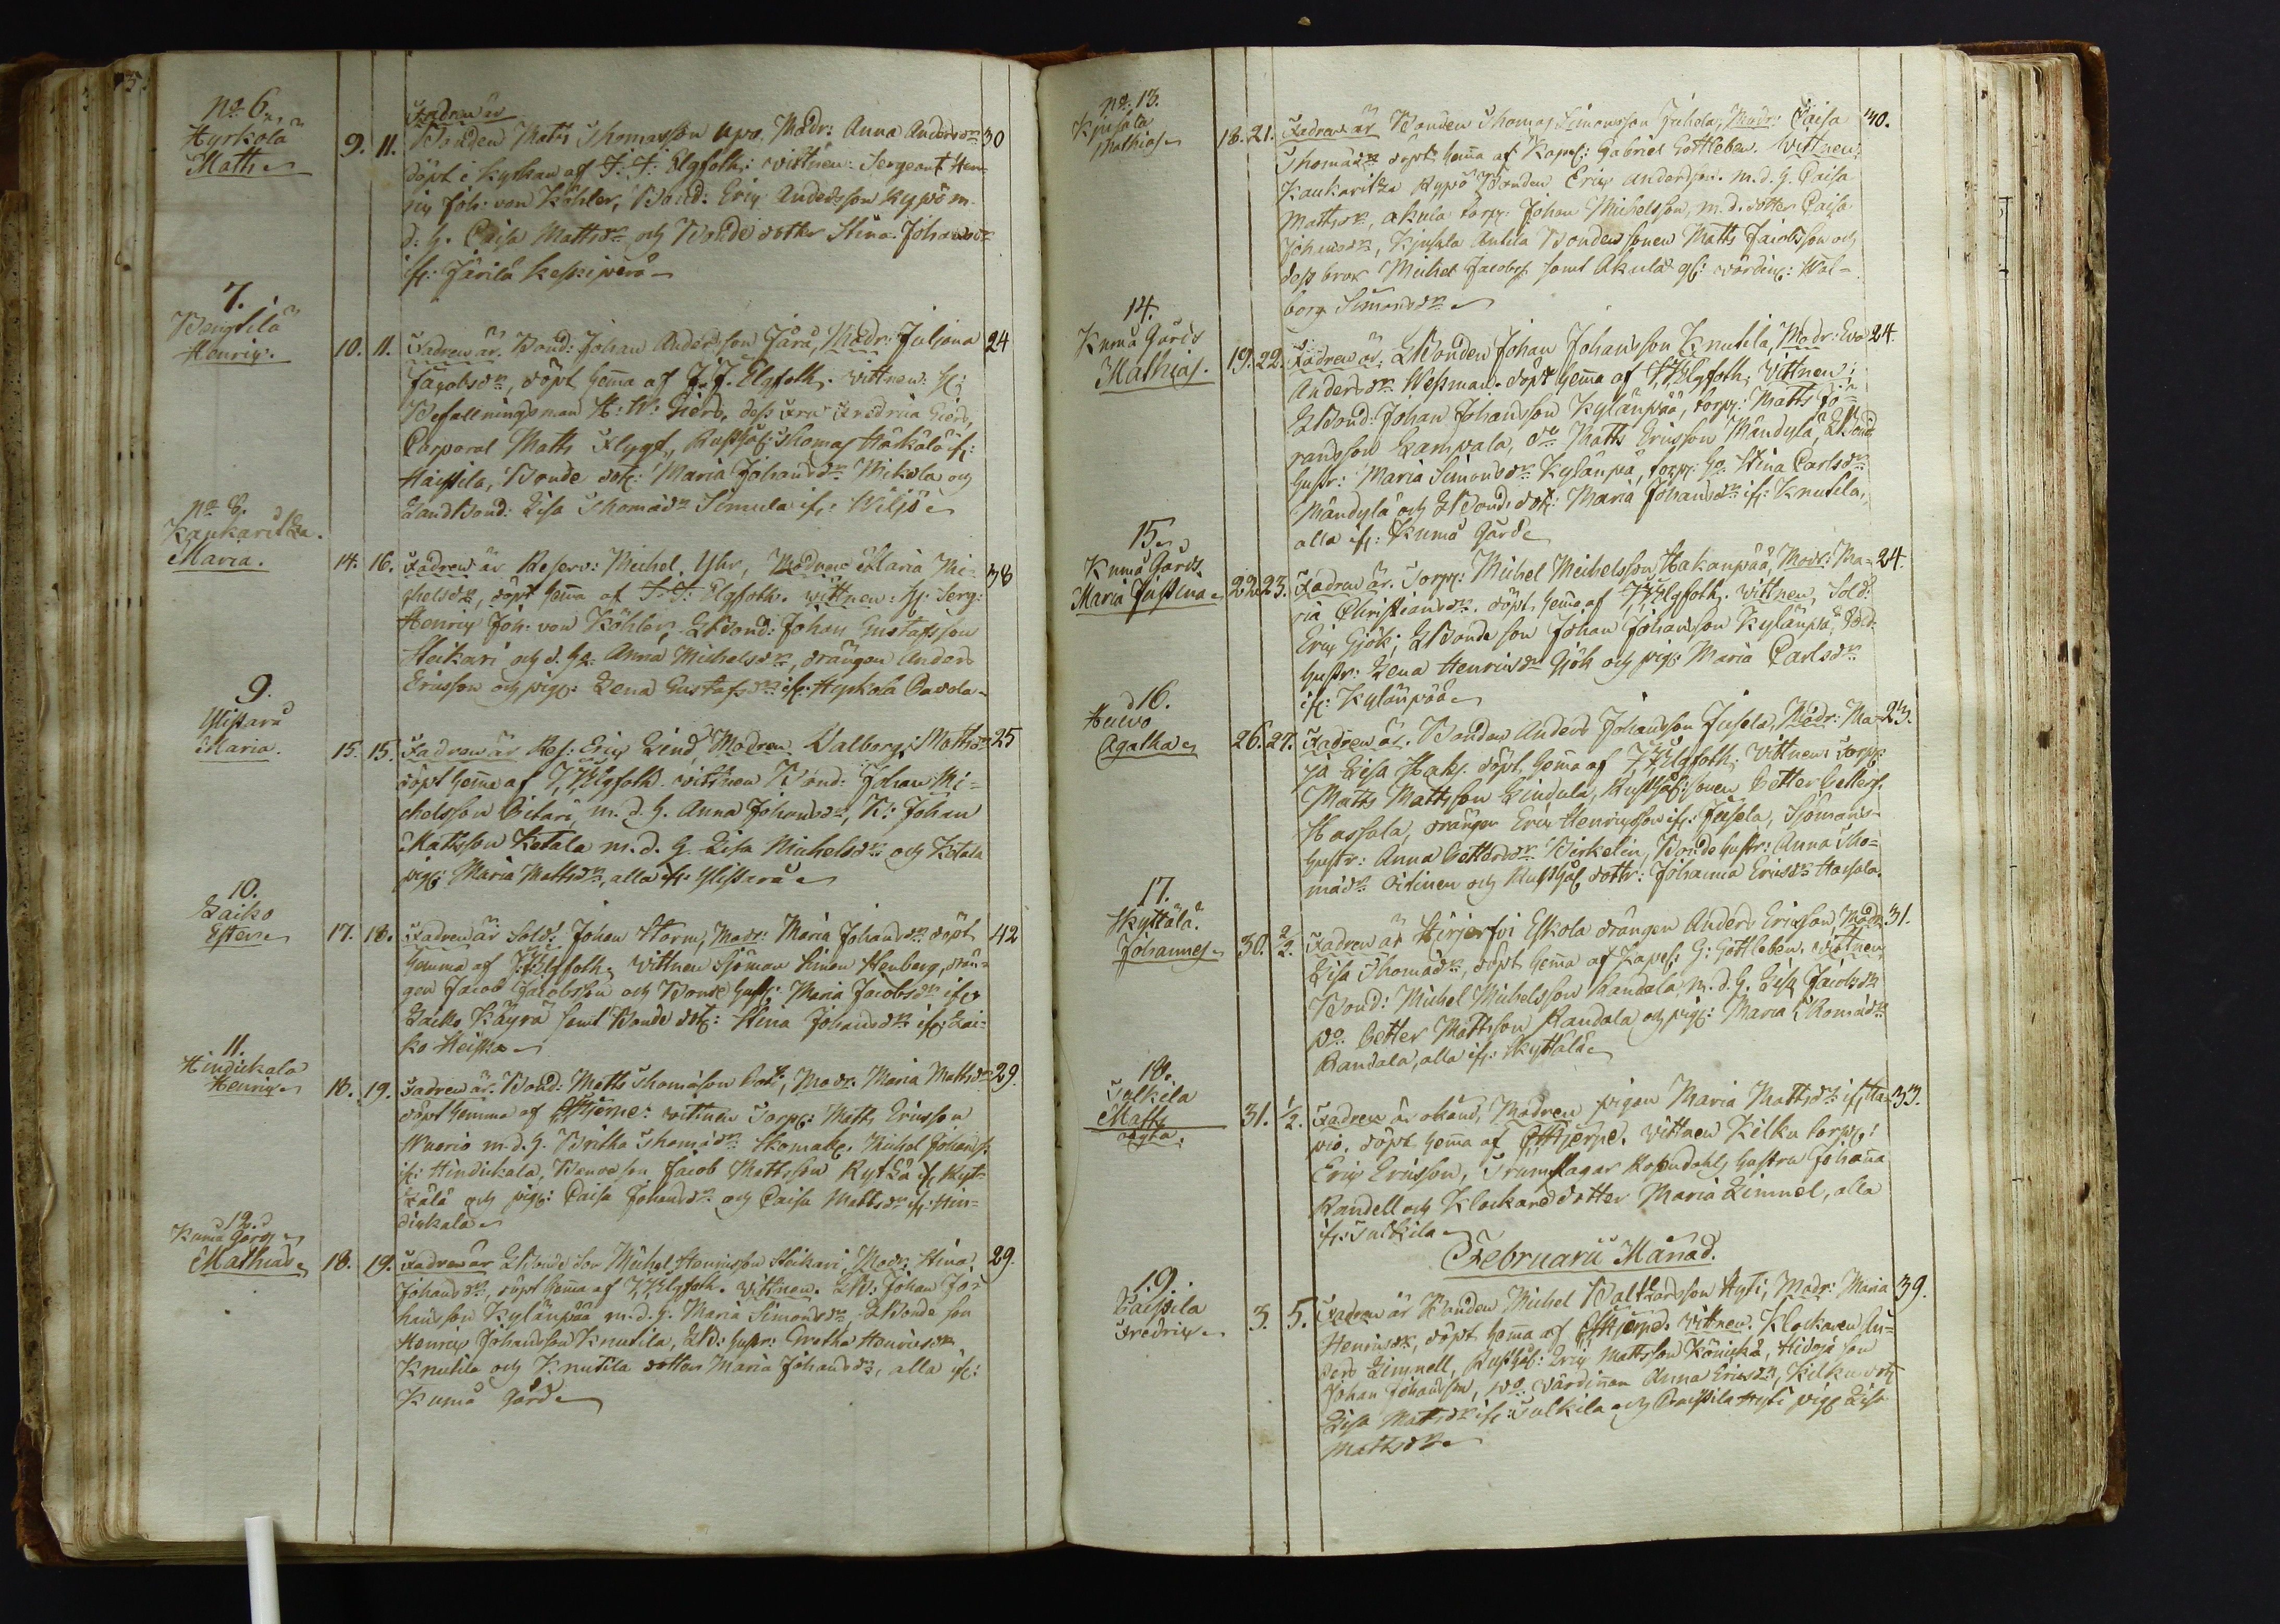 No 6.
Hyrkölä
Matts
9. 11. Fadren är
Bonden Matts Thomasson Upo. Modr: Anna Andersdr 30
döpt i kyrkan af J: J: Elgfoth: vittnen: Sergeant Hen-
ric Joh: von Köhler, Bond: Eric Andersson Rypö m.
d: h. Caisa Mattsdr och Bonde dotter Stina Johansdr
if: Järilä Keskiperä
7.
Henric.
10. 11. Fadren är. Bond: Johan Andersson Jära, Modr: Juliana 24
Jacobsdr, döpt hema af J. J. Elgfoth. vittnen: H:
Befallningsman H: W: Gierd, dess Fru Gierd,
Corporal Matts Flygt, Rusthåll: Thomas
Haissila, Bonde dott: Maria Johansdr Mikola och
Landbond: Lisa Thomædr Simula if: Wiljo
No 8.
Kankaritza.
Maria.
14. 16. Fadren är Reserv: Michel Yhr, Modren Maria Mi- 38
chelsdr, döpt hema af J: J: Elgfoth. vittnen: H: Serg:
Henric Joh: von Köhler, LBond: Johan Gustafsson
Steikari och d. h: Anna Michelsdr, drängen Anders
Ericsson och pig: Lena Gustafsdr if: Hyrkölä
9.
Ylistarå
Maria.
15. 15. Fadren är Res: Eric Lind, Modren Walborg Mattsdr 25
döpt hema af J. J. Elgfoth. vittnen Bond: Johan Mi-
chelsson Pitari, m. d. h. Anna Johansdr, B: Johan
Mattsson Ketala m. d. h. Lisa Michelsdr och Ketala
pig: Maria Mattsdr, alla if: Ylistarå
10.
Laiko
Ester
17. 18. Fadren är Sold: Johan Storm, Modr: Maria Johansdr döpt 42
hemma af J. J. Elgfoth. vittnen Sjöman Simon Henberg, drän-
gen Jacob Jacobsson och Bonde hust: Maria Jacobsdr if:
Laiko Käyrä samt Bonde dott: Stina Johansdr if: Lai-
ko Heiska
11.
Hindickala
Henric
18. 19. Fadren är. Bond: Matts Thomasson Modr: Maria Mattsdr 29.
döpt hemma af Stjerne: vittnen Torp: Matts Ericsson
Wuorio m. d. h. Britha Thomædr Skomak. Michel Johanss.
if: Hindickala, Bondeson Jacob Mattsson if: Kyt-
tälä och pig: Caisa Johansdr och Caisa Mattsdr if: Hin-
dickala
12.
Kumå Gård
Mathias
18. 19. Fadren är LBonde son Michel Henricsson Steikari, Modr: Stina 29.
Johansdr, döpt hema af J. J. Elgfoth. vittnen. LB: Johan Jo-
hansson Kylänpää m. d. h. Maria Simonsdr, LBonde son
Henric Johansson Knutila, LB: hustr: Gretha Henricsdr
Knutila och Knutila dotter Maria Johansdr, alla if:
Kumå Gård
No. 13.
Mathias
18. 21. Fadren är Bonden Thomas Simonsson Juhola, Modr: Caisa 30.
Thomædr döpt hema af Kapel: Gabriel Gottleben. Wittnen:
Kankaritza Rypö Bonden Eric Andersson. m. d. h. Caisa
Mattsdr, Akula torp: Johan Michelsson, m. d. dotter Caisa
Johansdr, Antila Bondensonen Matts Jacobsson och
dess bror Michel Jacobss. samt Akula gl: värdin: Wal-
borg Simonsdr
14.
Kumå Gård
Mathias.
19. 22. Fadren är LBonden Johan Johansson Knutila, Modr: Eva 24.
Andersdr Wessman. döpt hema af J. J. Elgfoth. Vittnen:
LBond: Johan Johansson Kylänpää, torp: Matts Jö-
ransson Lampala, do Matts Ericsson Mändylä, LBond
hustr: Maria Simonsdr Kylänpä, torp: ha. Stina Carlsdr
Mändylä och LBonde dott: Maria Johansdr if: Knutila,
alla if: Kumå Gård
15
Kumå Gård
Maria Justina
22. 23. Fadren är. Torp: Michel Michelsson Hakanpää, Modr: Ma- 24.
ria Christiansdr. döpt hema af J. J. Elgfoth. vittnen, Sold:
Eric Gjök, LBonde son Johan Johansson Kylänpä, Sold:
hustr: Lena Henricsdr Gjök och pig: Maria Carlsdr
if: Kylänpää
16.
Agatha
26. 27. Fadren är. Bonden Anders Johansson Jusela, Modr: Ma- 23.
ja Lisa Haks. döpt hema af J. J. Elgfoth. vittnen: Torp:
Matts Mattsson Lindula, Rusthåll: sonen Petter Petters.
Hassala, drängen Eric Henricsson if: Jusela, Sjömans
hustr: Anna Pettersdr Berkelin, Bonde hustr: Anna Tho-
mædr Oitinen och Rusthåll dottr: Johanna Ericsdr Hassala.
17.
Skyttälä.
Johannes
30. 2/2. Fadren är Hirjerfvi Eskola drängen Anders Ericsson, Modr: 31.
Lisa Thomædr, döpt hema af Capel: G: Gottleben. Vittnen
Bond: Michel Michelsson Randala, m. d. h. Lisa Jacobsdr
do. Petter Mattsson Randala och pig: Maria Thomædr
Randala, alla if: Skyttälä
18.
Sulkila
Matts
oägta.
31. 1/2. Fadren är okänd, Modren pigan Maria Mattsdr if: Ha- 33.
pio. döpt hema af Stjerne. vittnen Kilku torp:
Eric Ericsson, Trumslagar Rosendahl, hustru Johanna
Randell och Klockare dotter Maria Limnel, alla
if: Sulkila
Februarii Månad.
19.
Paisila
Fredric
3. 5. Fadren är Bonden Michel Baltzarsson Hyti, Modr: Maria 39.
Henricsdr, döpt hema af Stjerne. vittnen. Klockaren An-
ders Limnell, Rusthåll: Eric Mattsson Köniskä, Hidoja son
Johan Johansson, do. värdinnan Anna Ericsdr, Kilku dott:
Lisa Mattsdr if: Sulkila och Paisila Hyti pig: Lisa
Mattsdr